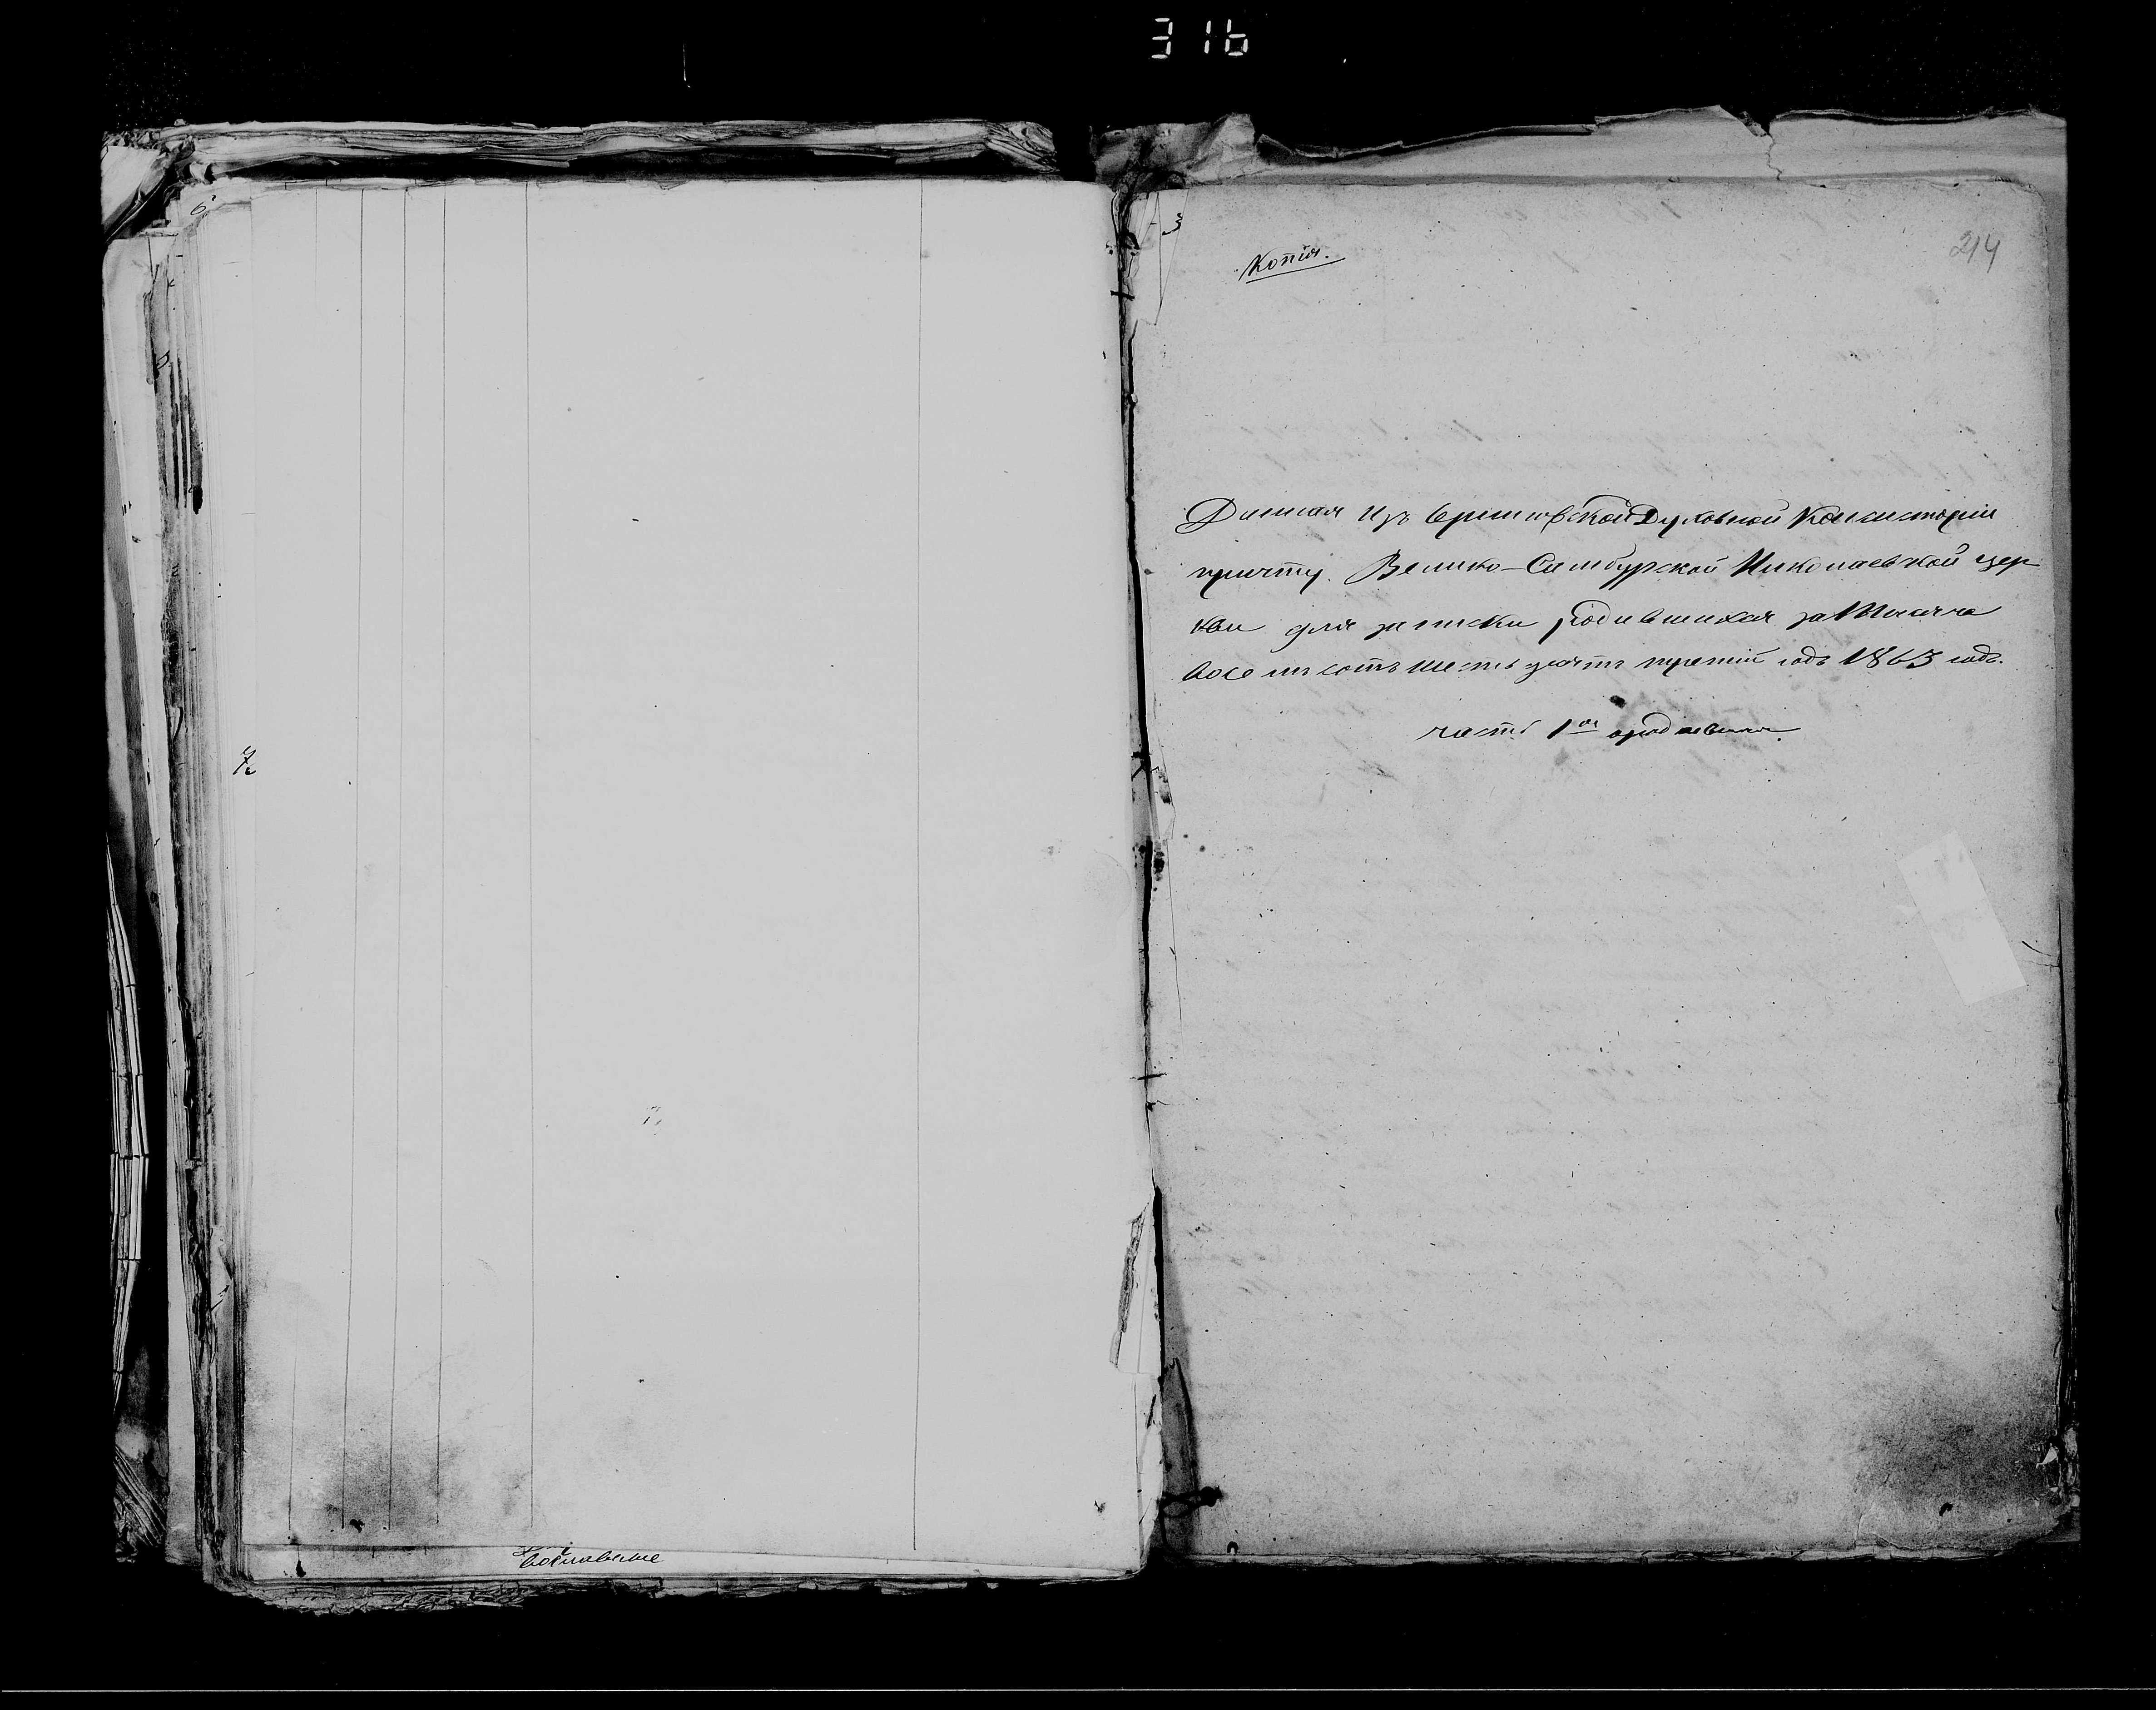 316
6
3
214
Копія.
Данная изъ Ериповской Духовной Консисторіи
причту Велико-Симбурской Николаевской цер
кви для записки родившихся за Тысяча
восемьсотъ шестьдесятъ третій годъ 1863 годъ.
часть 1ая о родившихся.